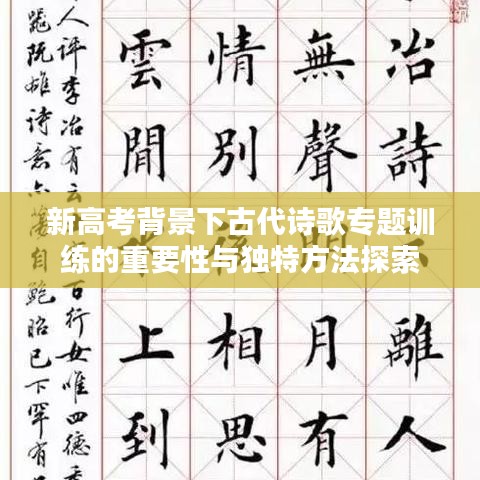 冶詩
離人
無聲
月有
情别
相思
雲間
上到
人评李冶有云
百行女唯四德季
阮雄诗意
自鲍昭已下罕有
新高考背景下古代诗歌专题训
练的重要性与独特方法探索